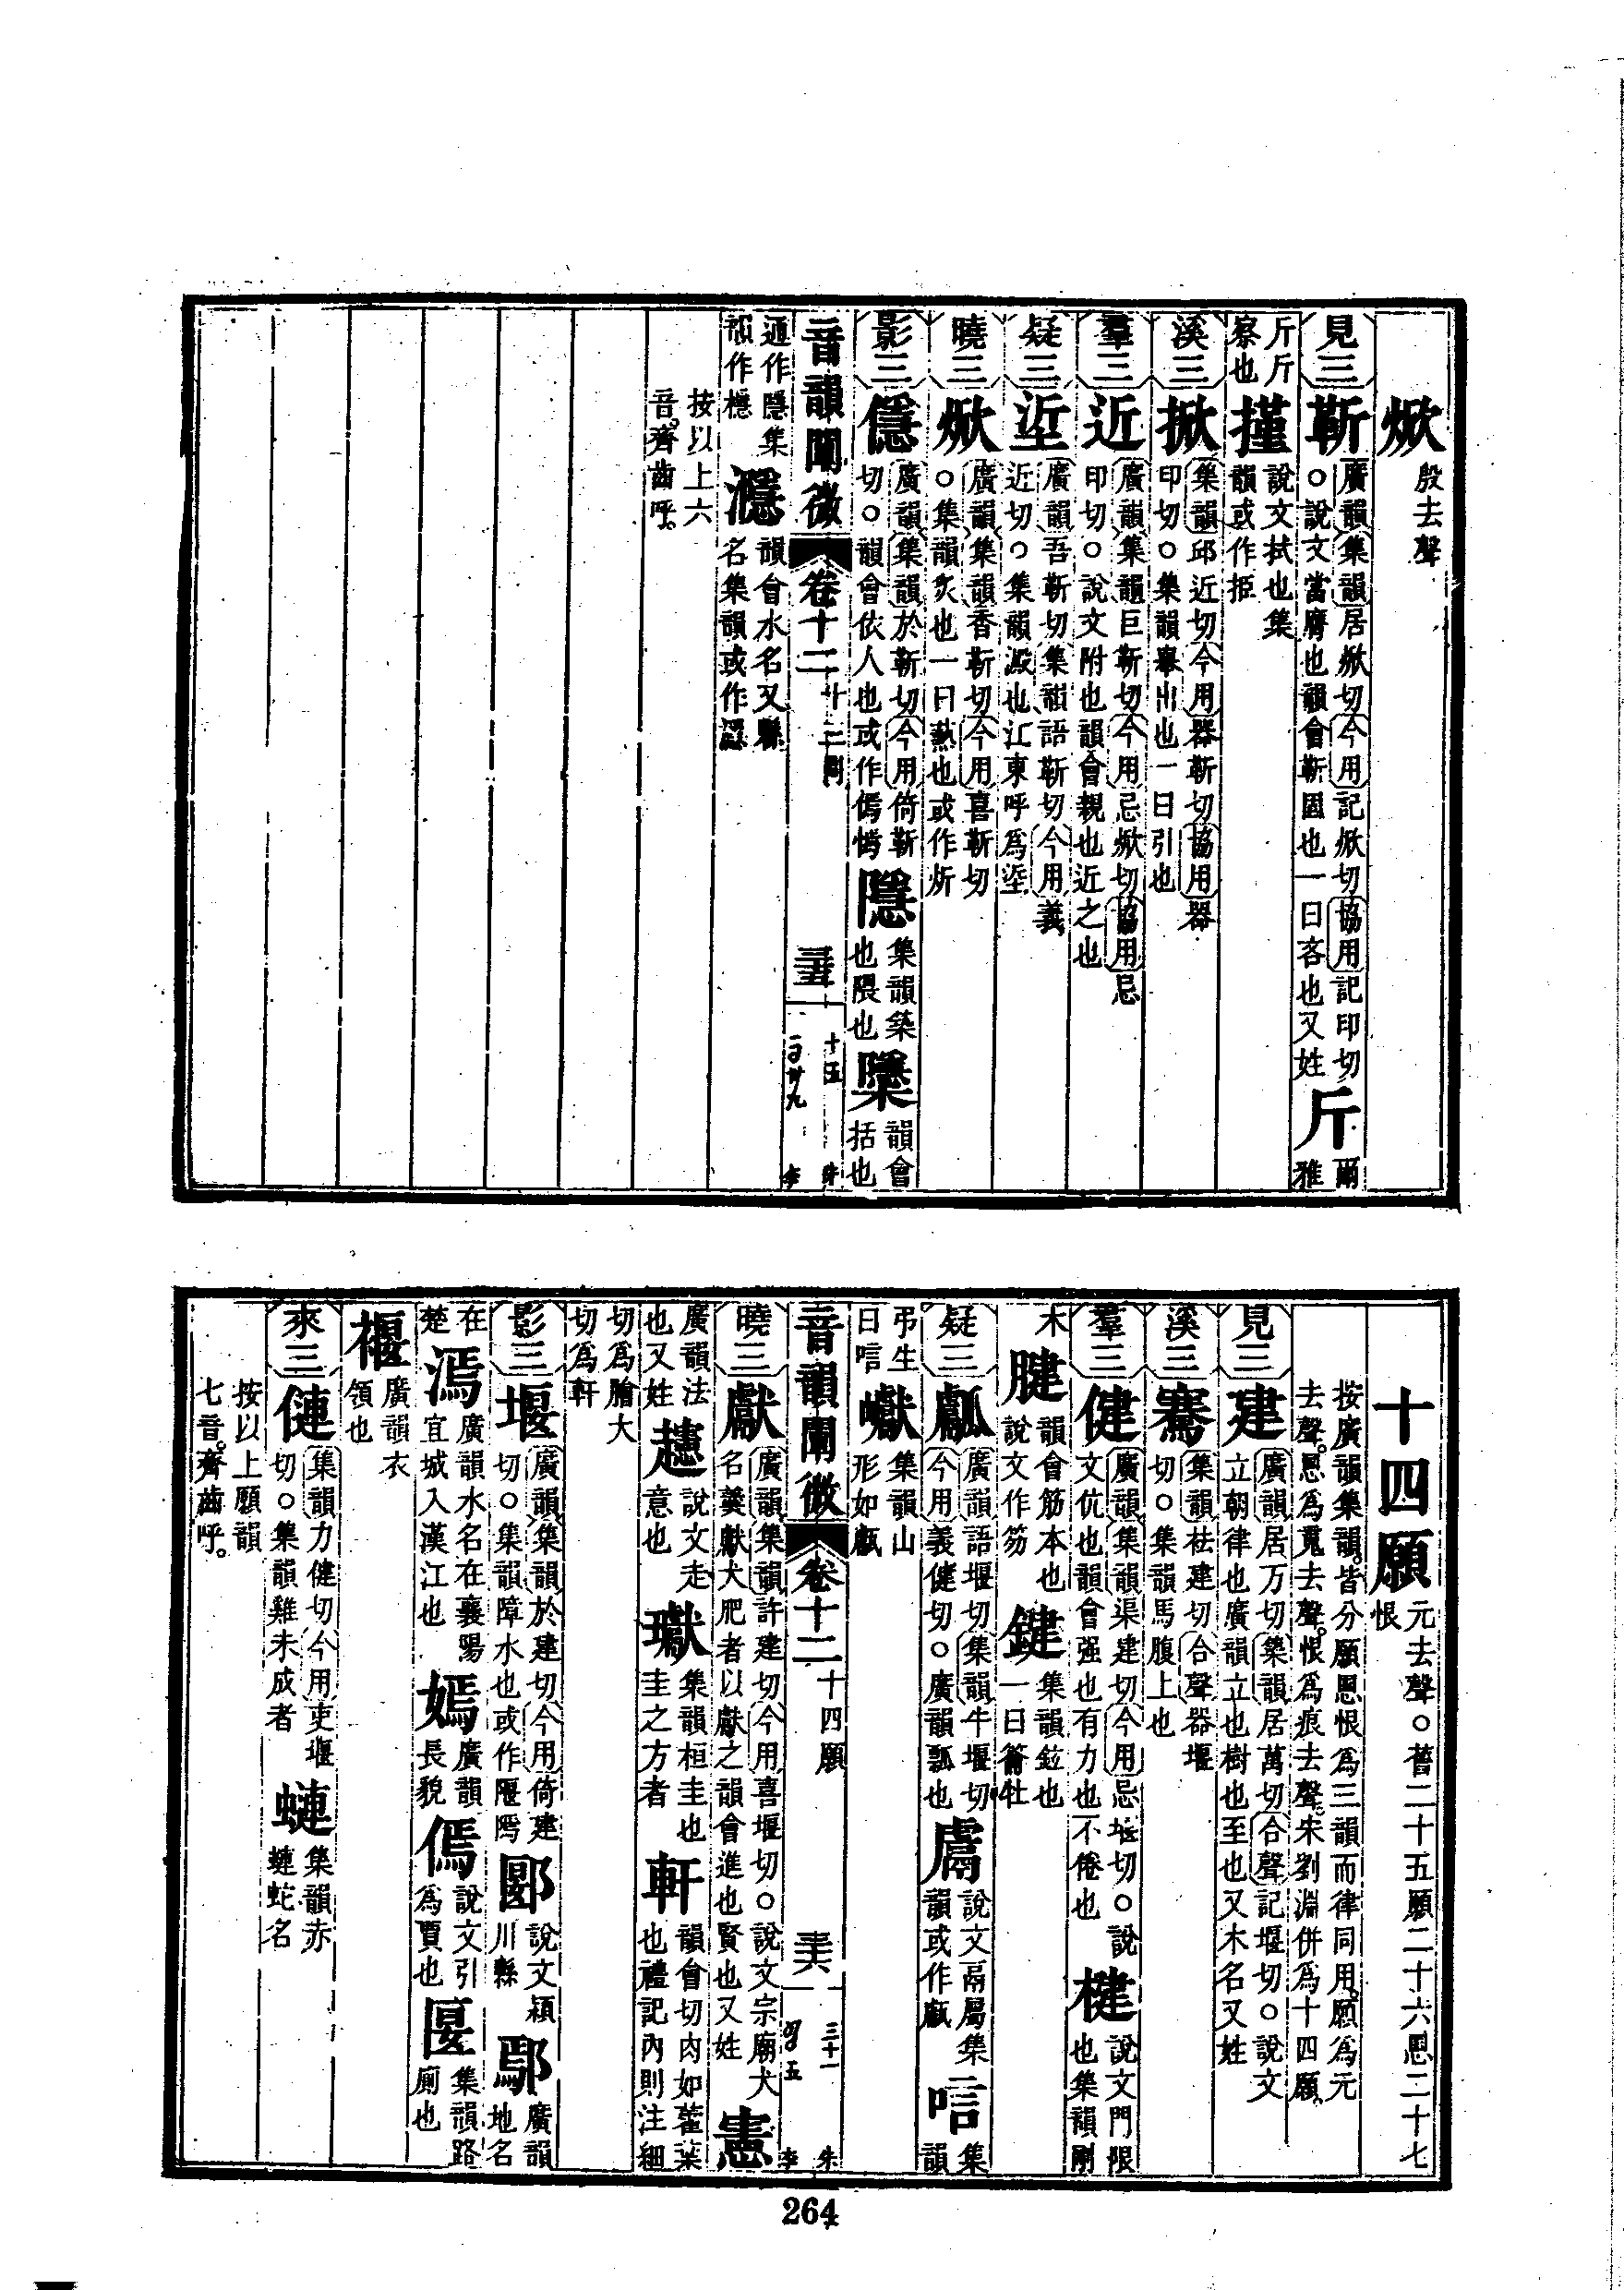 焮殷去聲
見三靳廣韻集韻居焮切今用記焮切協用記印切○說文當膺也韻會靳固也一曰吝也又姓斤爾雅
斤斤察也㨷說文拭也集韻或作拒
溪三掀集韻邱近切今用器靳切協用器印切○集韻舉出也一曰引也
羣三近廣韻集韻巨靳切今用忌焮切協用忌印切○說文附也韻會親也近之也
疑三垽廣韻吾靳切集韻語靳切今用義近切○集韻澱也江東呼爲垽
曉三焮廣韻集韻香靳切今用喜靳切○集韻炙也一曰熱也或作炘
影三㒚廣韻集韻於靳切今用倚靳切○韻會依人也或作㒚㥼隱集韻築也隈也檃韻會括也
音韻闡微卷十二 十二問
通作隱集韻作檼濦韻會水名又縣名集韻或作㶏
按以上六音齊齒呼
十四願元去聲○舊二十五願二十六慁二十七恨
按廣韻集韻皆分願慁恨爲三韻而律同用願爲元去聲慁爲䰟去聲恨爲痕去聲宋劉淵併爲十四願
見三建廣韻居万切集韻居萬切合聲記堰切○說文立朝律也廣韻立也樹也至也又木名又姓
溪三騫集韻袪建切合聲器堰切○集韻馬腹上也
羣三健廣韻集韻渠建切今用忌堰切○說文伉也韻會强也有力也不倦也楗說文門限也集韻剛
木腱韻會筋本也說文作笏鍵集韻鉉也一曰籥牡
疑三甗廣韻語堰切集韻牛堰切今用義健切○廣韻瓢也鬳說文鬲屬集韻或作甗唁集韻
弔生曰唁巘集韻山形如甗
音韻闡微卷十二 十四願
曉三獻廣韻集韻許建切今用喜堰切○說文宗廟犬名羹獻犬肥者以獻之韻會進也賢也又姓憲
廣韻法也又姓趰說文走意也瓛集韻桓圭也圭之方者軒韻會切肉如藿葉也禮記內則注細
切爲膾大切爲軒
影三堰廣韻集韻於建切今用倚建切○集韻障水也或作隁隝郾說文潁川縣鄢廣韻地名
在楚漹廣韻水名在襄陽宜城入漢江也嫣廣韻長貌傿說文引爲賈也匽集韻路厠也
褗廣韻衣領也
來三僆集韻力健切今用吏堰切○集韻雞未成者蝬集韻赤蝬蛇名
按以上願韻七音齊齒呼
264